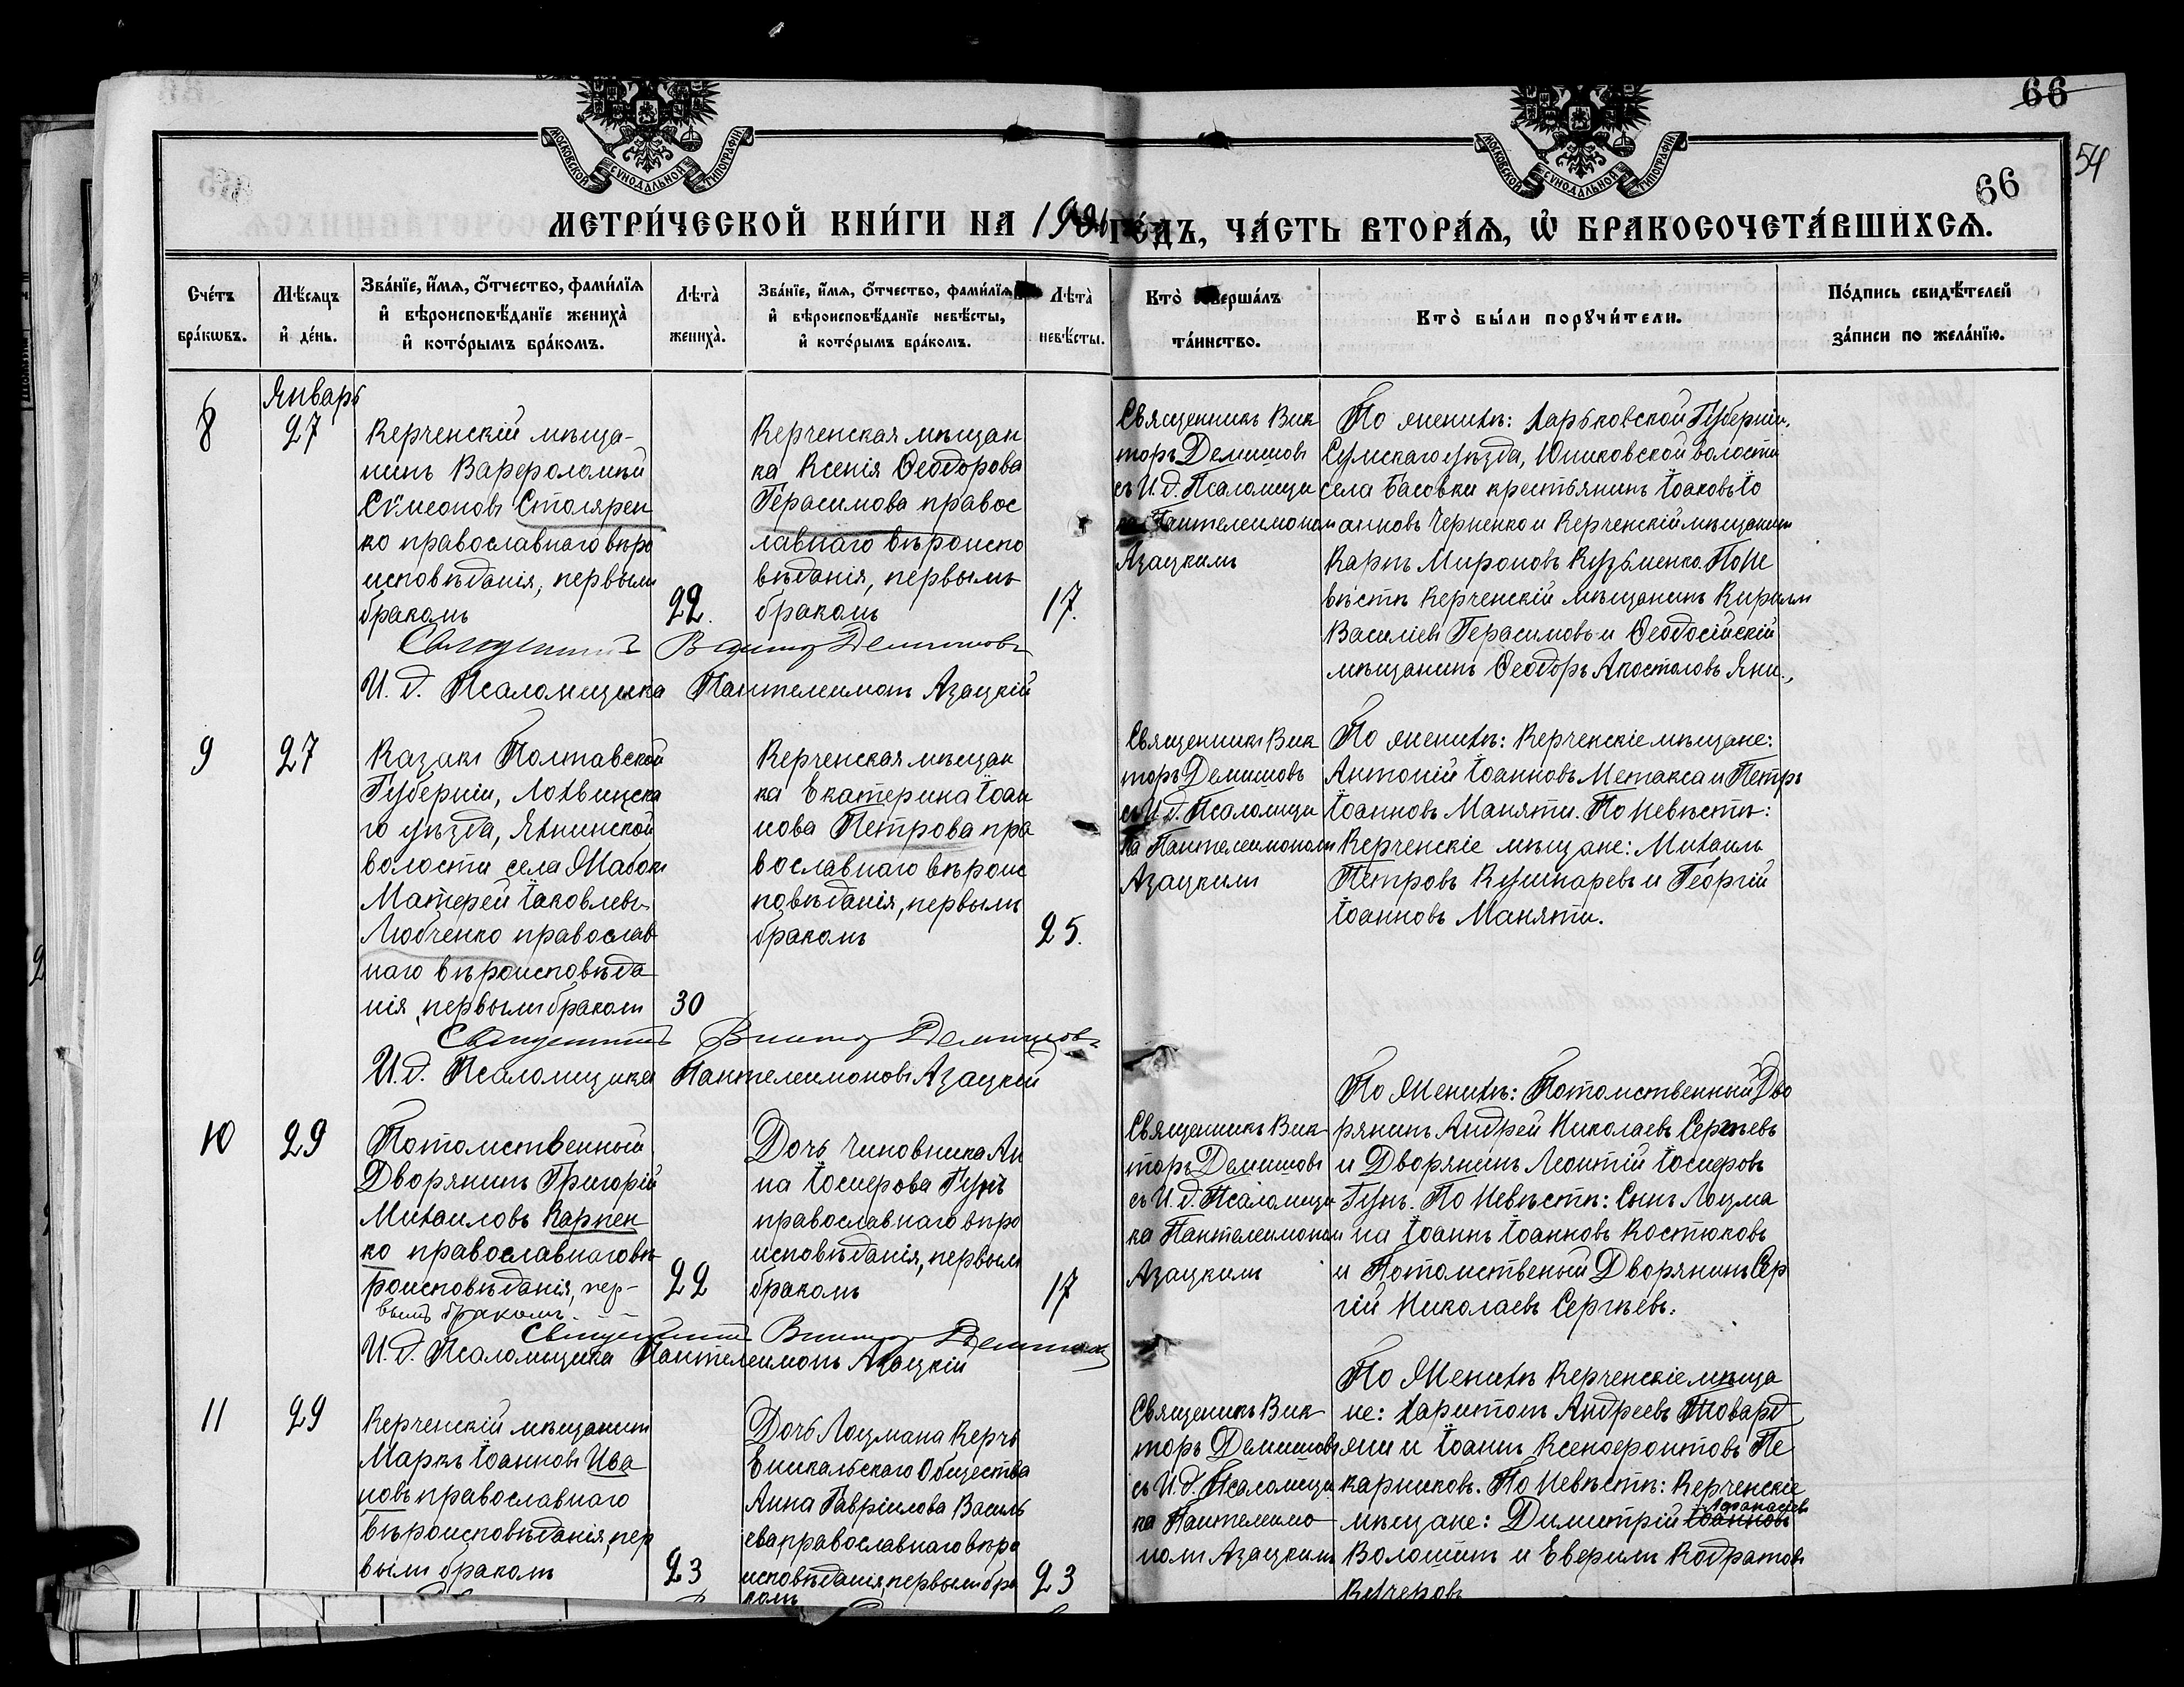 66
54
66
МОСКОВСКОЙ СУНОДАЛЬНОЙ ТИПОГРАФІИ
МОСКОВСКОЙ СУНОДАЛЬНОЙ ТИПОГРАФІИ
МЕТРИ́ЧЕСКОЙ КНИ́ГИ НА ГО́ДЪ, ЧА́СТЬ ВТОРА́Ѧ, Ѽ БРАКОСОЧЕТА́ВШИХСѦ.
Сче́тъ бра́кѡвъ.
Мѣ́сѧцъ и҆ де́нь.
Зва́нїе, и҆́мѧ, о҆́тчество, фами́лїѧ и҆ вѣроисповѣ́данїе жениха̀ и҆ кото́рымъ бра́комъ.
Лѣта̀ жениха̀.
Зва́нїе, и҆́мѧ, о҆́тчество, фами́лїѧ и҆ вѣроисповѣ́данїе невѣ́сты, и҆ кото́рымъ бра́комъ.
Лѣта̀ невѣ́сты.
Кто̀ соверша́лъ та́инство.
Кто̀ бы́ли порꙋчи́тели.
По́дпись свидѣ́телей за́писи по жела́нїю.
Январь
8
27
Керченскій мѣща-
нинъ Варѳоломей
Сѵмеоновъ Столярен
ко православнаго вѣро
исповѣданія, первымъ
бракомъ
22.
Керченская мѣщан
ка Ксенія Ѳеодорова
Герасимова правос
лавнаго вѣроиспо
вѣданія, первымъ
бракомъ
17.
Священникъ Вик
торъ Демишовъ
съ И. д. Псаломщи
ка Пантелеимономъ
Азацкимъ
По женихѣ: Харьковской Губерніи,
Сумскаго уѣзда, Юнаковской волости
села Басовки крестьянинъ Іоаковъ Іо
анновъ Черненко и Керченскій мѣщанинъ
Карпъ Мироновъ Кузьменко. По не
вѣстѣ Керченскій мѣщанинъ Кирилъ
Василіевъ Герасимовъ и Ѳеодосійскій
мѣщанинъ Ѳеодоръ Апостоловъ Яни.,
Священникъ Викторъ Демишовъ
И. д. Псаломщика Пантелеимонъ Азацкій
9
27
Казакъ Полтавской
Губерніи, Лохвицска
го уѣзда, Яхнинской
волости села Жабокъ
Матфей Іаковлевъ
Любченко православ
наго вѣроисповѣда
нія, первымъ бракомъ
30
Керченская мѣщан
ка Екатерина Іоан
нова Петрова пра
вославнаго вѣроис
повѣданія, первымъ
бракомъ
25.
Священникъ Вик
торъ Демишовъ
съ И. д. Псаломщи
ка Пантелеимономъ
Азацкимъ
По женихѣ: Керченскіе мѣщане:
Антоній Іоанновъ Метакса и Петръ
Іоанновъ Маняти. По Невѣстѣ:
Керченскіе мѣщане: Михаилъ
Петровъ Кушнаревъ и Георгій
Іоанновъ Маняти.
Священникъ Викторъ Демишовъ
И. д. Псаломщика Пантелеимоновъ Азацкій
10
29
Потомственный
Дворянинъ Григорій
Михаиловъ Карпен
ко православнаго вѣ
роисповѣданія, пер-
вымъ бракомъ.
22
Дочь Чиновника Ан
на Іосифова Гунъ
православнаго вѣро
исповѣданія, первымъ
бракомъ
17
Священникъ Вик
торъ Демишовъ
съ И. д. Псаломщи
ка Пантелеимоном
Азацкимъ
По Женихѣ: Потомственный Дво
рянинъ Андрей Николаевъ Сергѣевъ
и Дворянинъ Леонтій Іосифовъ
Гунъ. По Невѣстѣ: Сынъ Лоцма
на Іоаннъ Іоанновъ Костюковъ
и Потомственый Дворянинъ Сер
гій Николаевъ Сергѣевъ.
Священникъ Викторъ Демишовъ
И. д. Псаломщика Пантелеимонъ Азацкій
11
29
Керченскій мѣщанинъ
Маркъ Іоанновъ Ива
новъ православнаго
вѣроисповѣданія, пер
вымъ бракомъ
23
Дочь Лоцмана Керчь
Еникальскаго Общества
Анна Гавріилова Василь
ева, православнаго вѣро
исповѣданія, первымъ бра
комъ
23
Священникъ Вик
торъ Демишовъ
съ И. д. Псаломщи
ка Пантелеимо
номъ Азацкимъ
По Женихѣ Керченскіе мѣща
не: Харитонъ Андреевъ Товард
жи и Іоаннъ Ксенофонтовъ Пе
карниковъ. По Невѣстѣ: Керченскіе
Афанасіевъ
мѣщане: Димитрій Іоанновъ
Волошинъ и Еверимъ Кодратовъ
Кучеровъ